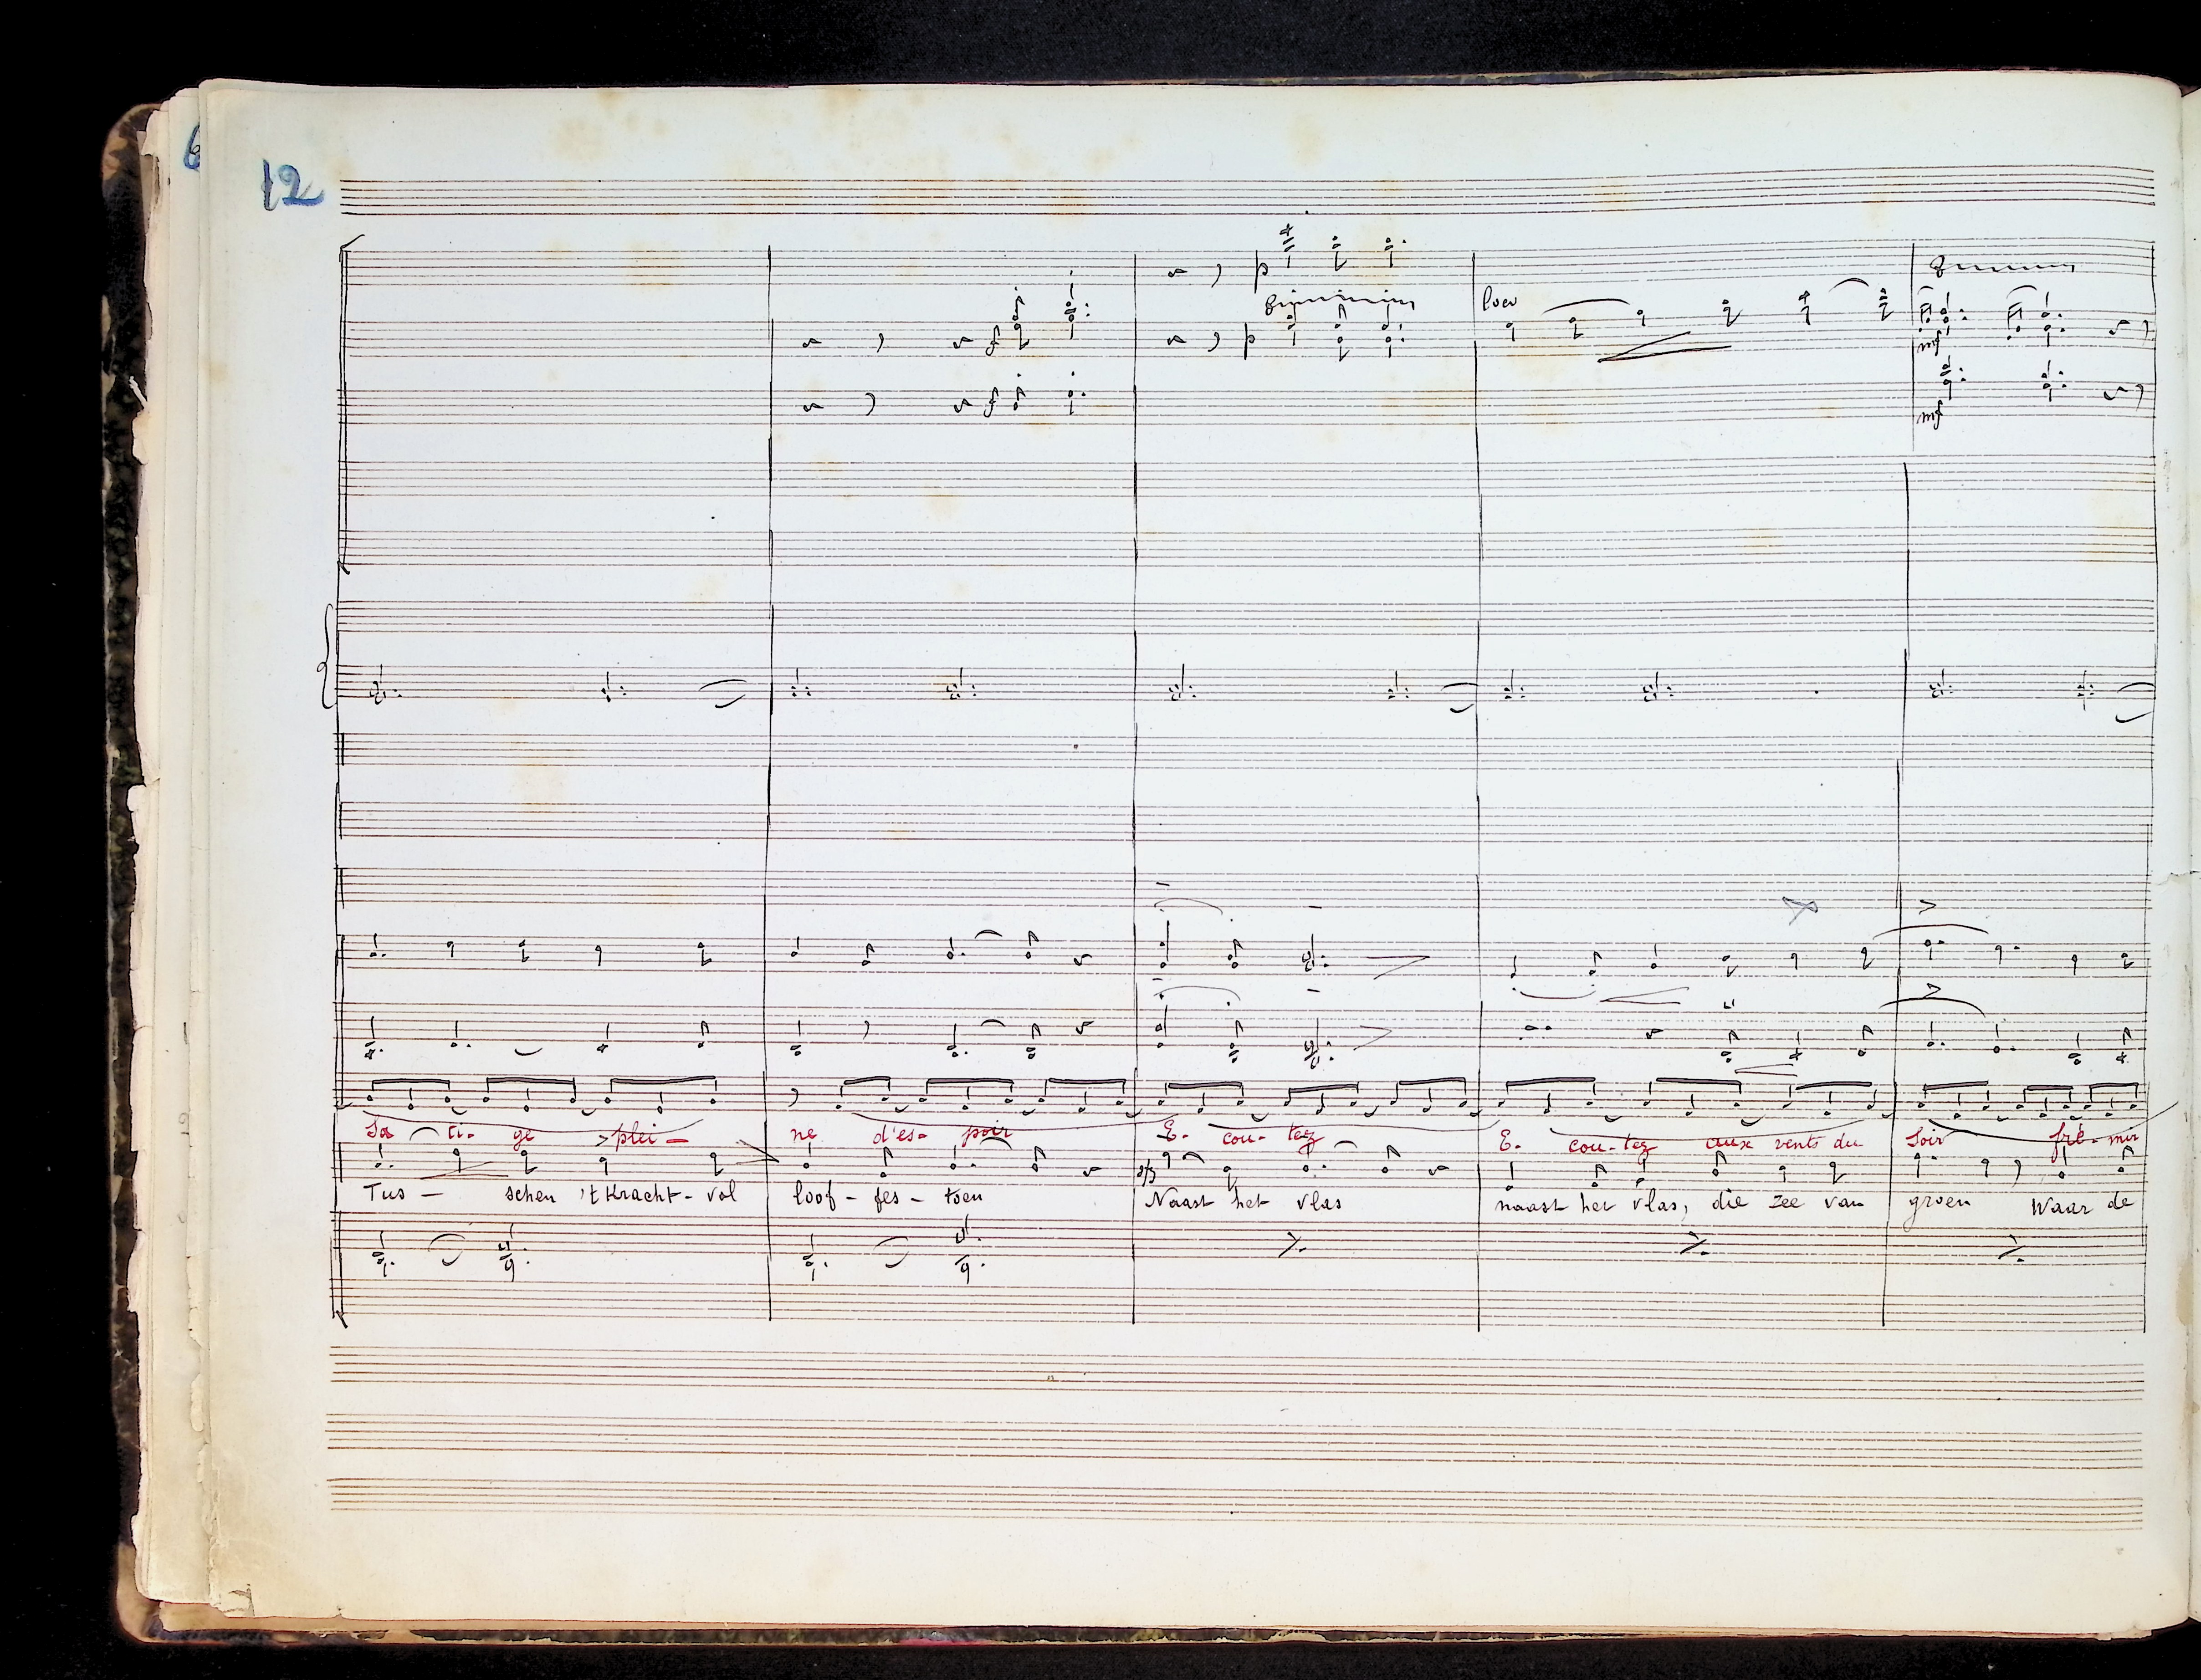 6
12
p
loco
f
p
mf
f
mf
Sa ti- ge plei- ne d'es- poir E- cou- tez E- cou- tez aux vents du Soir fré- mir
sfz
Tus- schen 't Kracht- vol loof- fes- toen Naast het vlas naast het vlas, die zee van groen Waar de